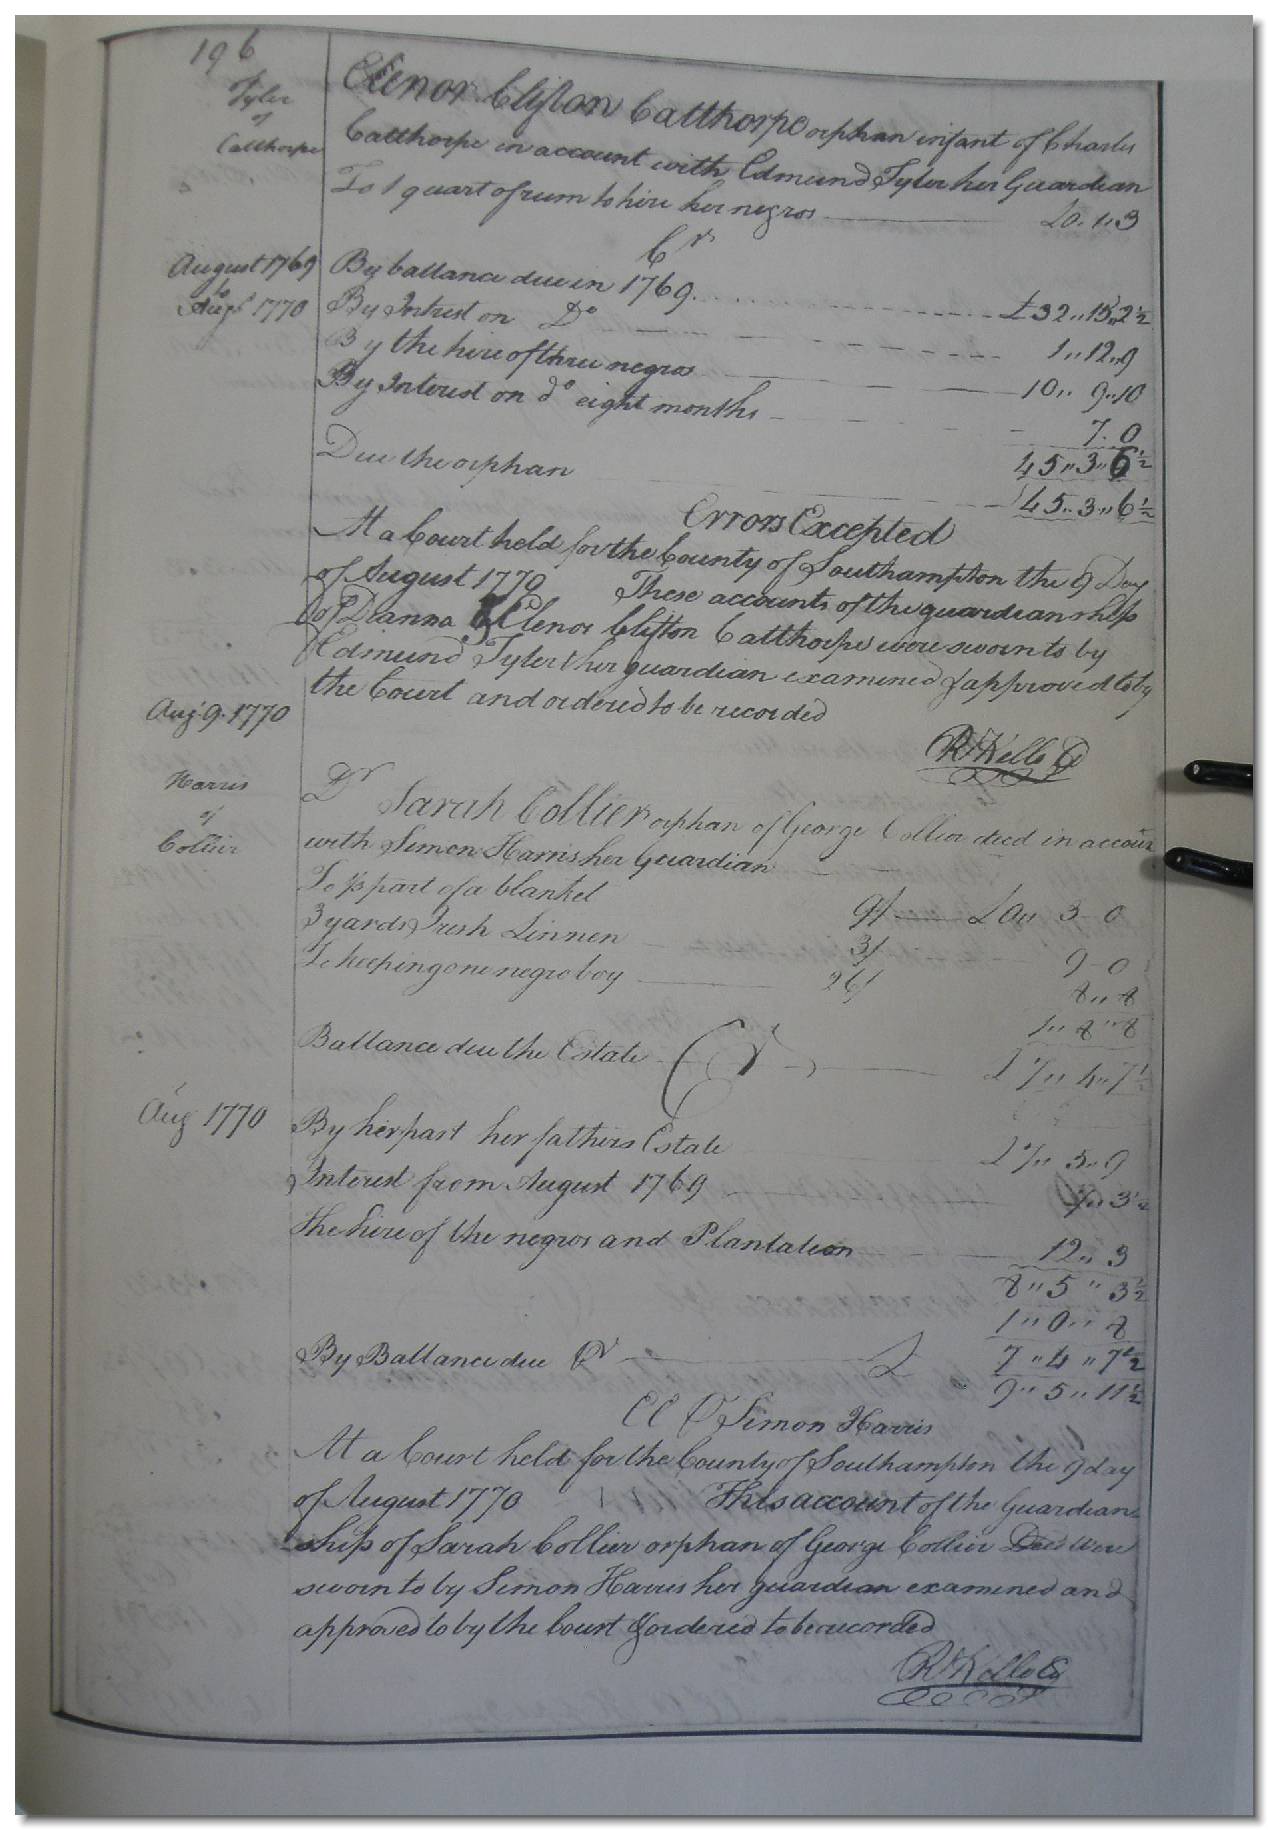 196
Tyler
of
Calthorpe
Elenor Clifton Calthorpe orphan infant of Charles
Calthorpe in account with Edmund Tyler her Guardian
To 1 quart of rum to hire her negros £0.1,,3
Cr
August 1769
to
Augt 1770
By ballance due in 1769 £32,,13,,2½
By Intrest on Do 1,,12,,9
By the hire of three negros 10,, 9,,10
By Interest on do eight months 7. 0
45,,3,,6½
Due the orphan 45,,3,,6½
Errors Excepted
At a Court held for the County of Southampton the 9 Day
of August 1770 These accounts of the guardianship
of Dianna & Elenor Clifton Calthorpe were sworn to by
Edmund Tyler ther guardian examined & approved to by
the Court and ordered to be recorded
Aug. 9. 1770
R Kello
Harris
of
Collier
Dr
Sarah Collier orphan of George Collier deed in accout
with Simon Harris her Guardian
To ⅓ part of a blanket 9/ £0,, 3-0
3 yards Irush Linnen 3/ 9-0
To keeping one negro boy 26/ 8,,8
1,,8,,8
Ballance due the Estate £7,,4,,7½
Cr
Aug 1770
By her part her fathers Estate £7,,5,,9
Interest from August 1769 7,,3½
the hire of the negros and Plantation 12,,3
8,,5,,3½
1,,0,,8
By Ballance due 7,,4,,7½
9,,5,,11½
Simon Harris
At a Court held for the County of Southampton the 9 day
of August 1770 This account of the Guardian
ship of Sarah Collier orphan of George Collier Deed were
sworn to by Simon Harris her guardian examined and
approved to by the Court & ordered to be recorded
R Kello